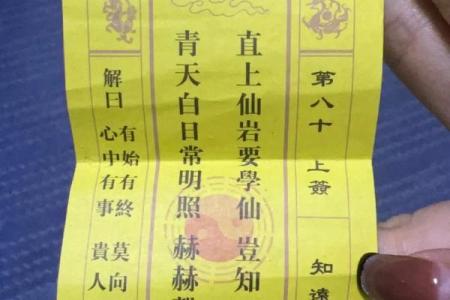 第八十 上簽 知遠
直上仙岩要學仙 豈知
青天白日常明照 赫赫
解曰
有始有終 莫向
心中有事 貴人